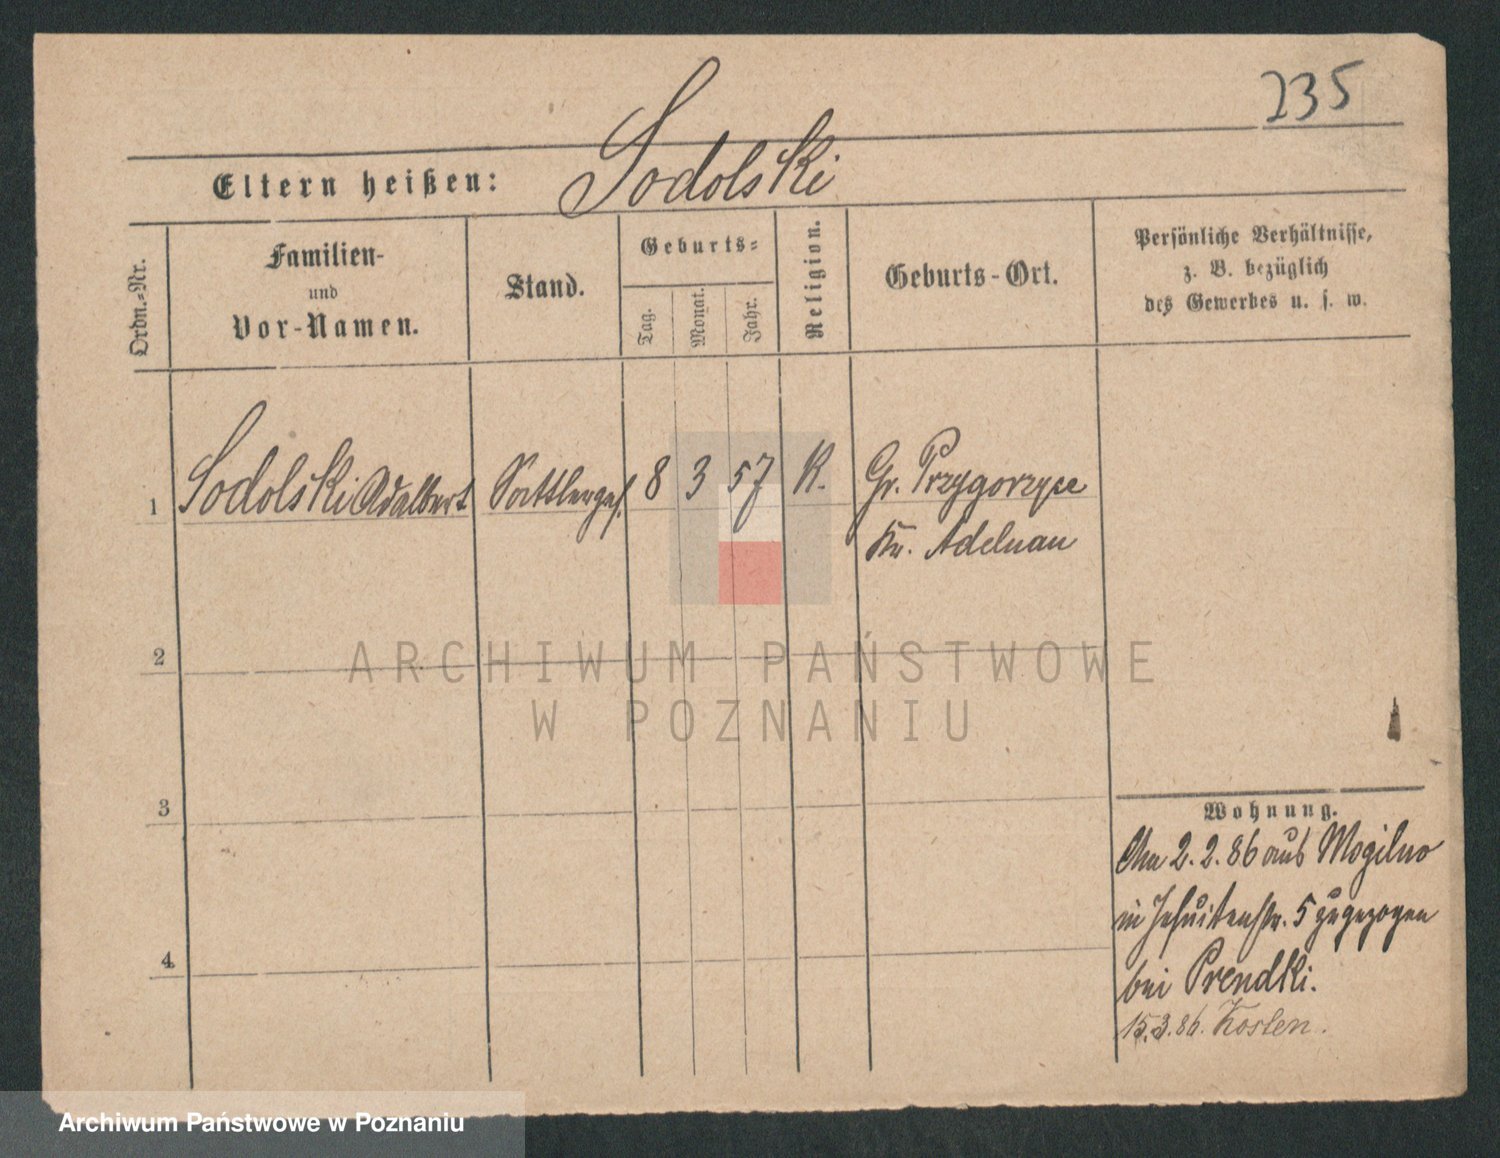 235
Eltern heißen: Sodolski
Ordn.=Nr.
Familien-
und
Vor-Namen.
Stand.
Geburts=
Tag.
Monat.
Jahr.
Religion.
Geburts-Ort.
Persönliche Verhältnisse,
z. B. bezüglich
des Gewerbes u. s. w.
1 Sodolski Adalbert Sattlerges. 8 3 57 K. Gr. Przygorzyce
Kr. Adelnau
2
ARCHIWUM PAŃSTWOWE
W POZNANIU
3
4
Wohnung.
Am 2. 2. 86 aus Mogilno
in Jesuitenstr. 5 zugezogen
bei Prendki.
15.3.86. Kosten.
Archiwum Państwowe w Poznaniu